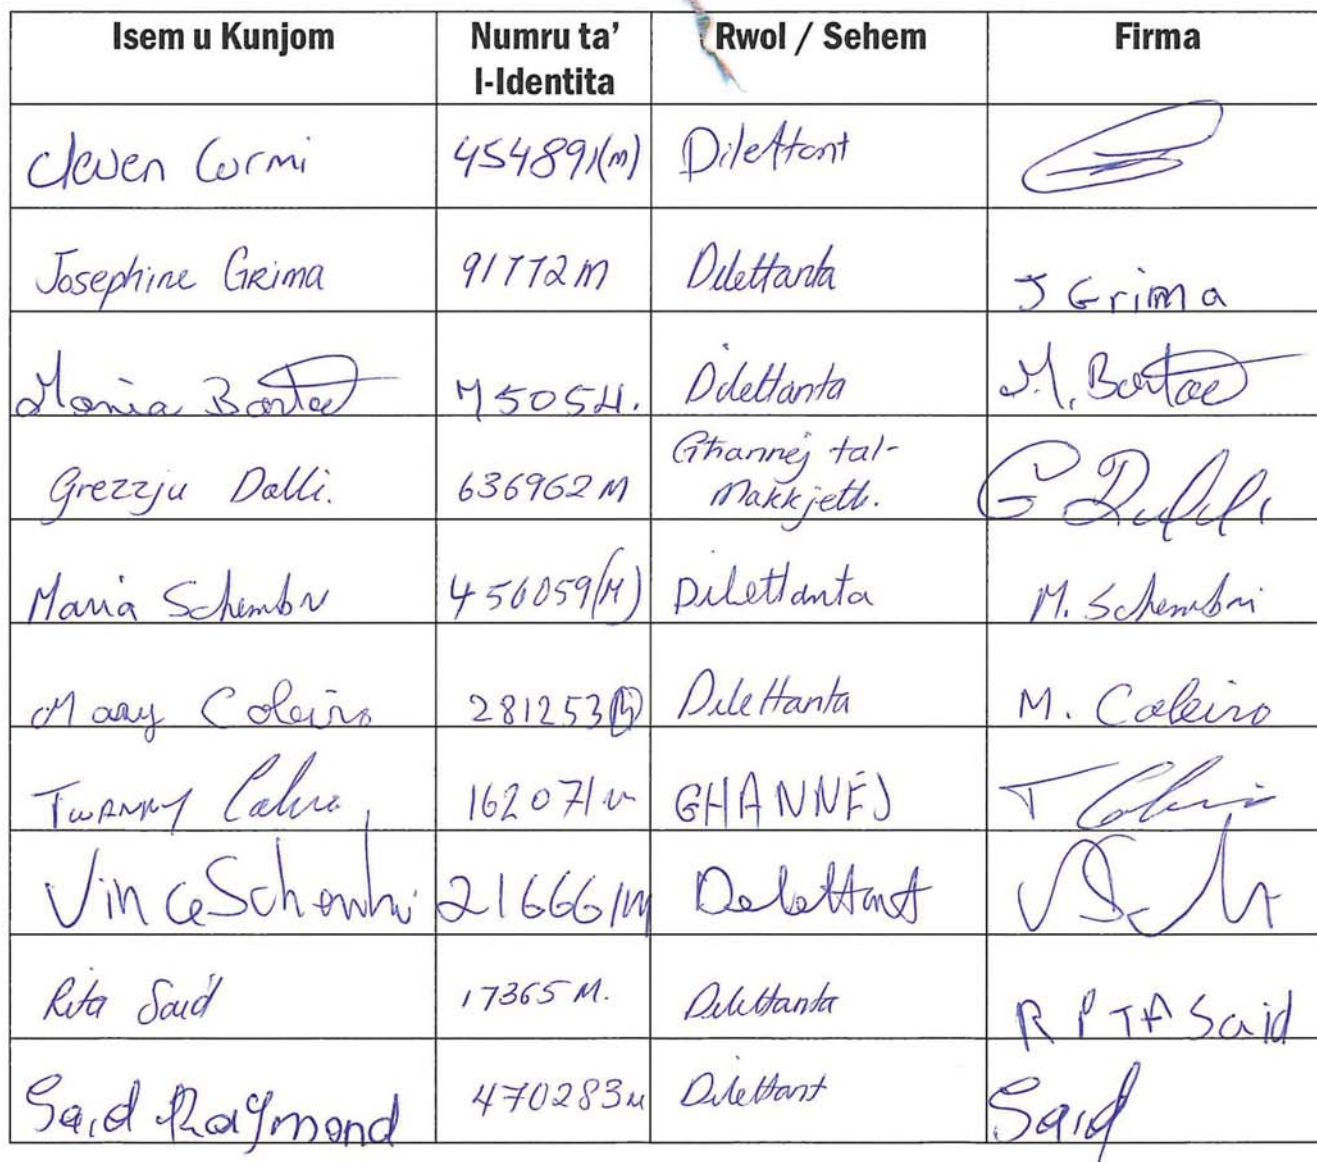 Isem u Kunjom Numru ta' Rwol / Sehem Firma
l-Identita
Cleven Curmi 454891(M) Dilettant
Josephine Grima 91772M Dilettanta J Grima
Dilettanta M.
Grezzju Dalli. 636962M Għannej tal- G Dalli
Makkjett.
Maria Schembri 456059(M) Dilettanta M. Schembri
Mary Coleiro 281253(M) Dilettanta M. Coleiro
Twanny 162071M GHANNEJ T
Vince Schembri 21666M Delettant
Rita Said 17365M. Dilettanta RITA Said
Said Raymond 470283M Dilettant Said